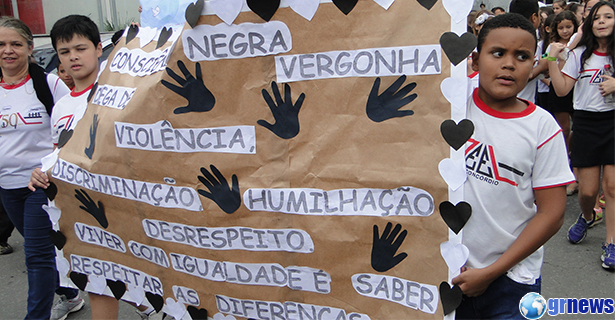 CONSCIÊNCIA NEGRA
CHEGA DE VERGONHA
VIOLÊNCIA,
DISCRIMINAÇÃO HUMILHAÇÃO
DESRESPEITO
VIVER COM IGUALDADE É SABER
RESPEITAR AS DIFERENÇAS
CONCORDIO
grnews